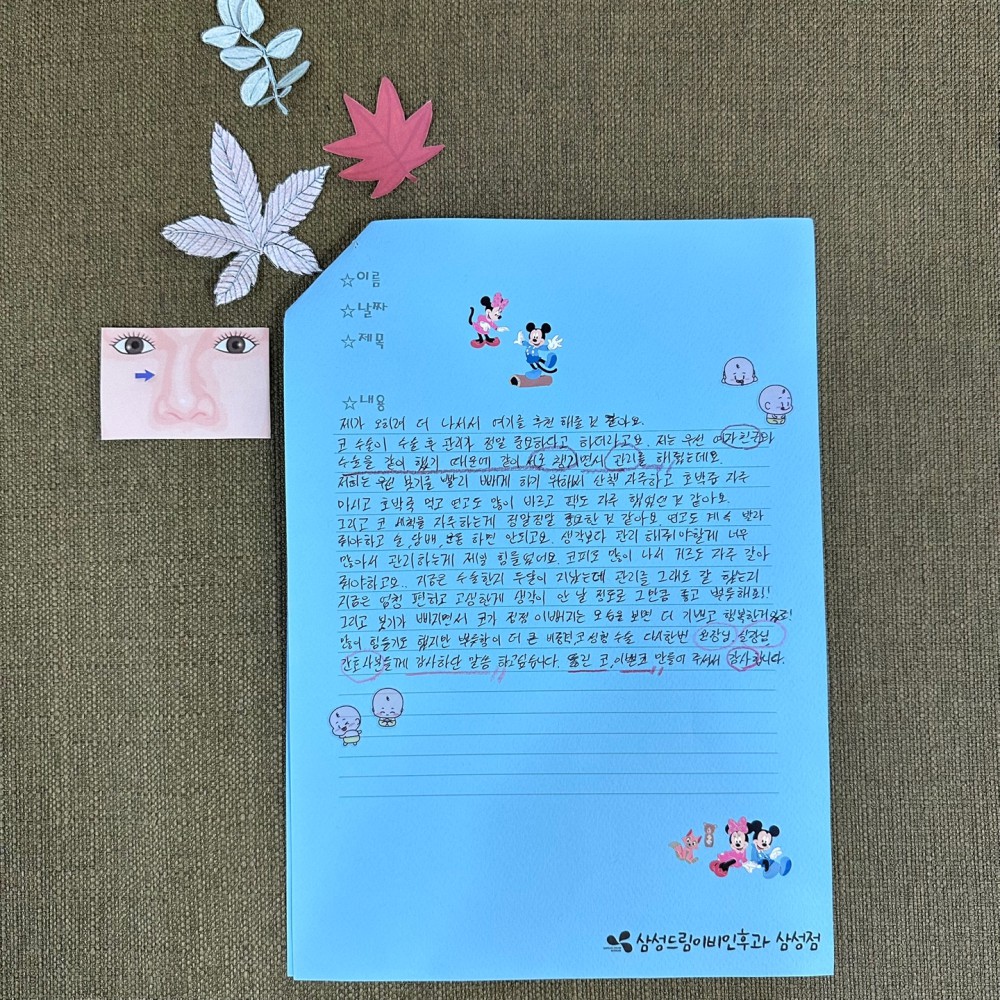 ☆이름
☆날짜
☆제목
☆내용
제가 오히려 더 나서서 여기를 추천 해준 것 같아요.
코 수술이 수술 후 관리가 정말 중요하다고 하더라고요. 저는 우선 여자친구와
수술을 같이 했기 때문에 같이 서로 챙기면서 관리를 해줬는데요.
저희는 우선 붓기를 빨리 빠지게 하기 위해서 산책 자주하고 호박즙 자주
마시고 호박죽 먹고 연고도 많이 바르고 팩도 자주 했었던 것 같아요.
그리고 코 세척을 자주하는게 정말정말 중요한 것 같아요 연고도 계속 발라
줘야하고 술,담배,운동 하면 안되고요. 생각보다 관리 해줘야할게 너무
많아서 관리하는게 제일 힘들었어요. 코피도 많이 나서 거즈도 자주 갈아
줘야하고요.. 지금은 수술한지 두달이 지났는데 관리를 그래도 잘 했는지
지금은 엄청 편하고 고생한게 생각이 안 날 정도로 그만큼 좋고 뿌듯해요!!
그리고 붓기가 빠지면서 코가 점점 이뻐지는 모습을 보면 더 기쁘고 행복한거
많이 힘들기도 했지만 뿌듯함이 더 큰 비중격 코 성형 수술 다시한번 원장님, 실장님
간호사분들께 감사하단 말씀 하고싶습니다. 뚫린 코, 이쁜코 만들어 주셔서 감사합니다.
삼성드림이비인후과 삼성점